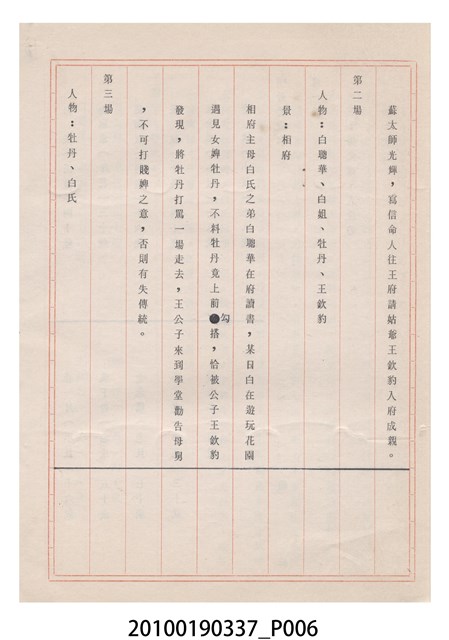 蘇太師光輝，寫信命人往王府請姑爺王欽豹入府成親。
第二場
人物：白聰華、白姐、牡丹、王欽豹
景：相府
相府主母白氏之弟白聰華在府讀書，某日白在遊玩花園
遇見女婢牡丹，不料牡丹竟上前勾搭，恰被公子王欽豹
發現，將牡丹打罵一場走去，王公子來到學堂勸告母舅
，不可打賤婢之意，否則有失傳統。
第三場
人物：牡丹、白氏
20100190337_P006